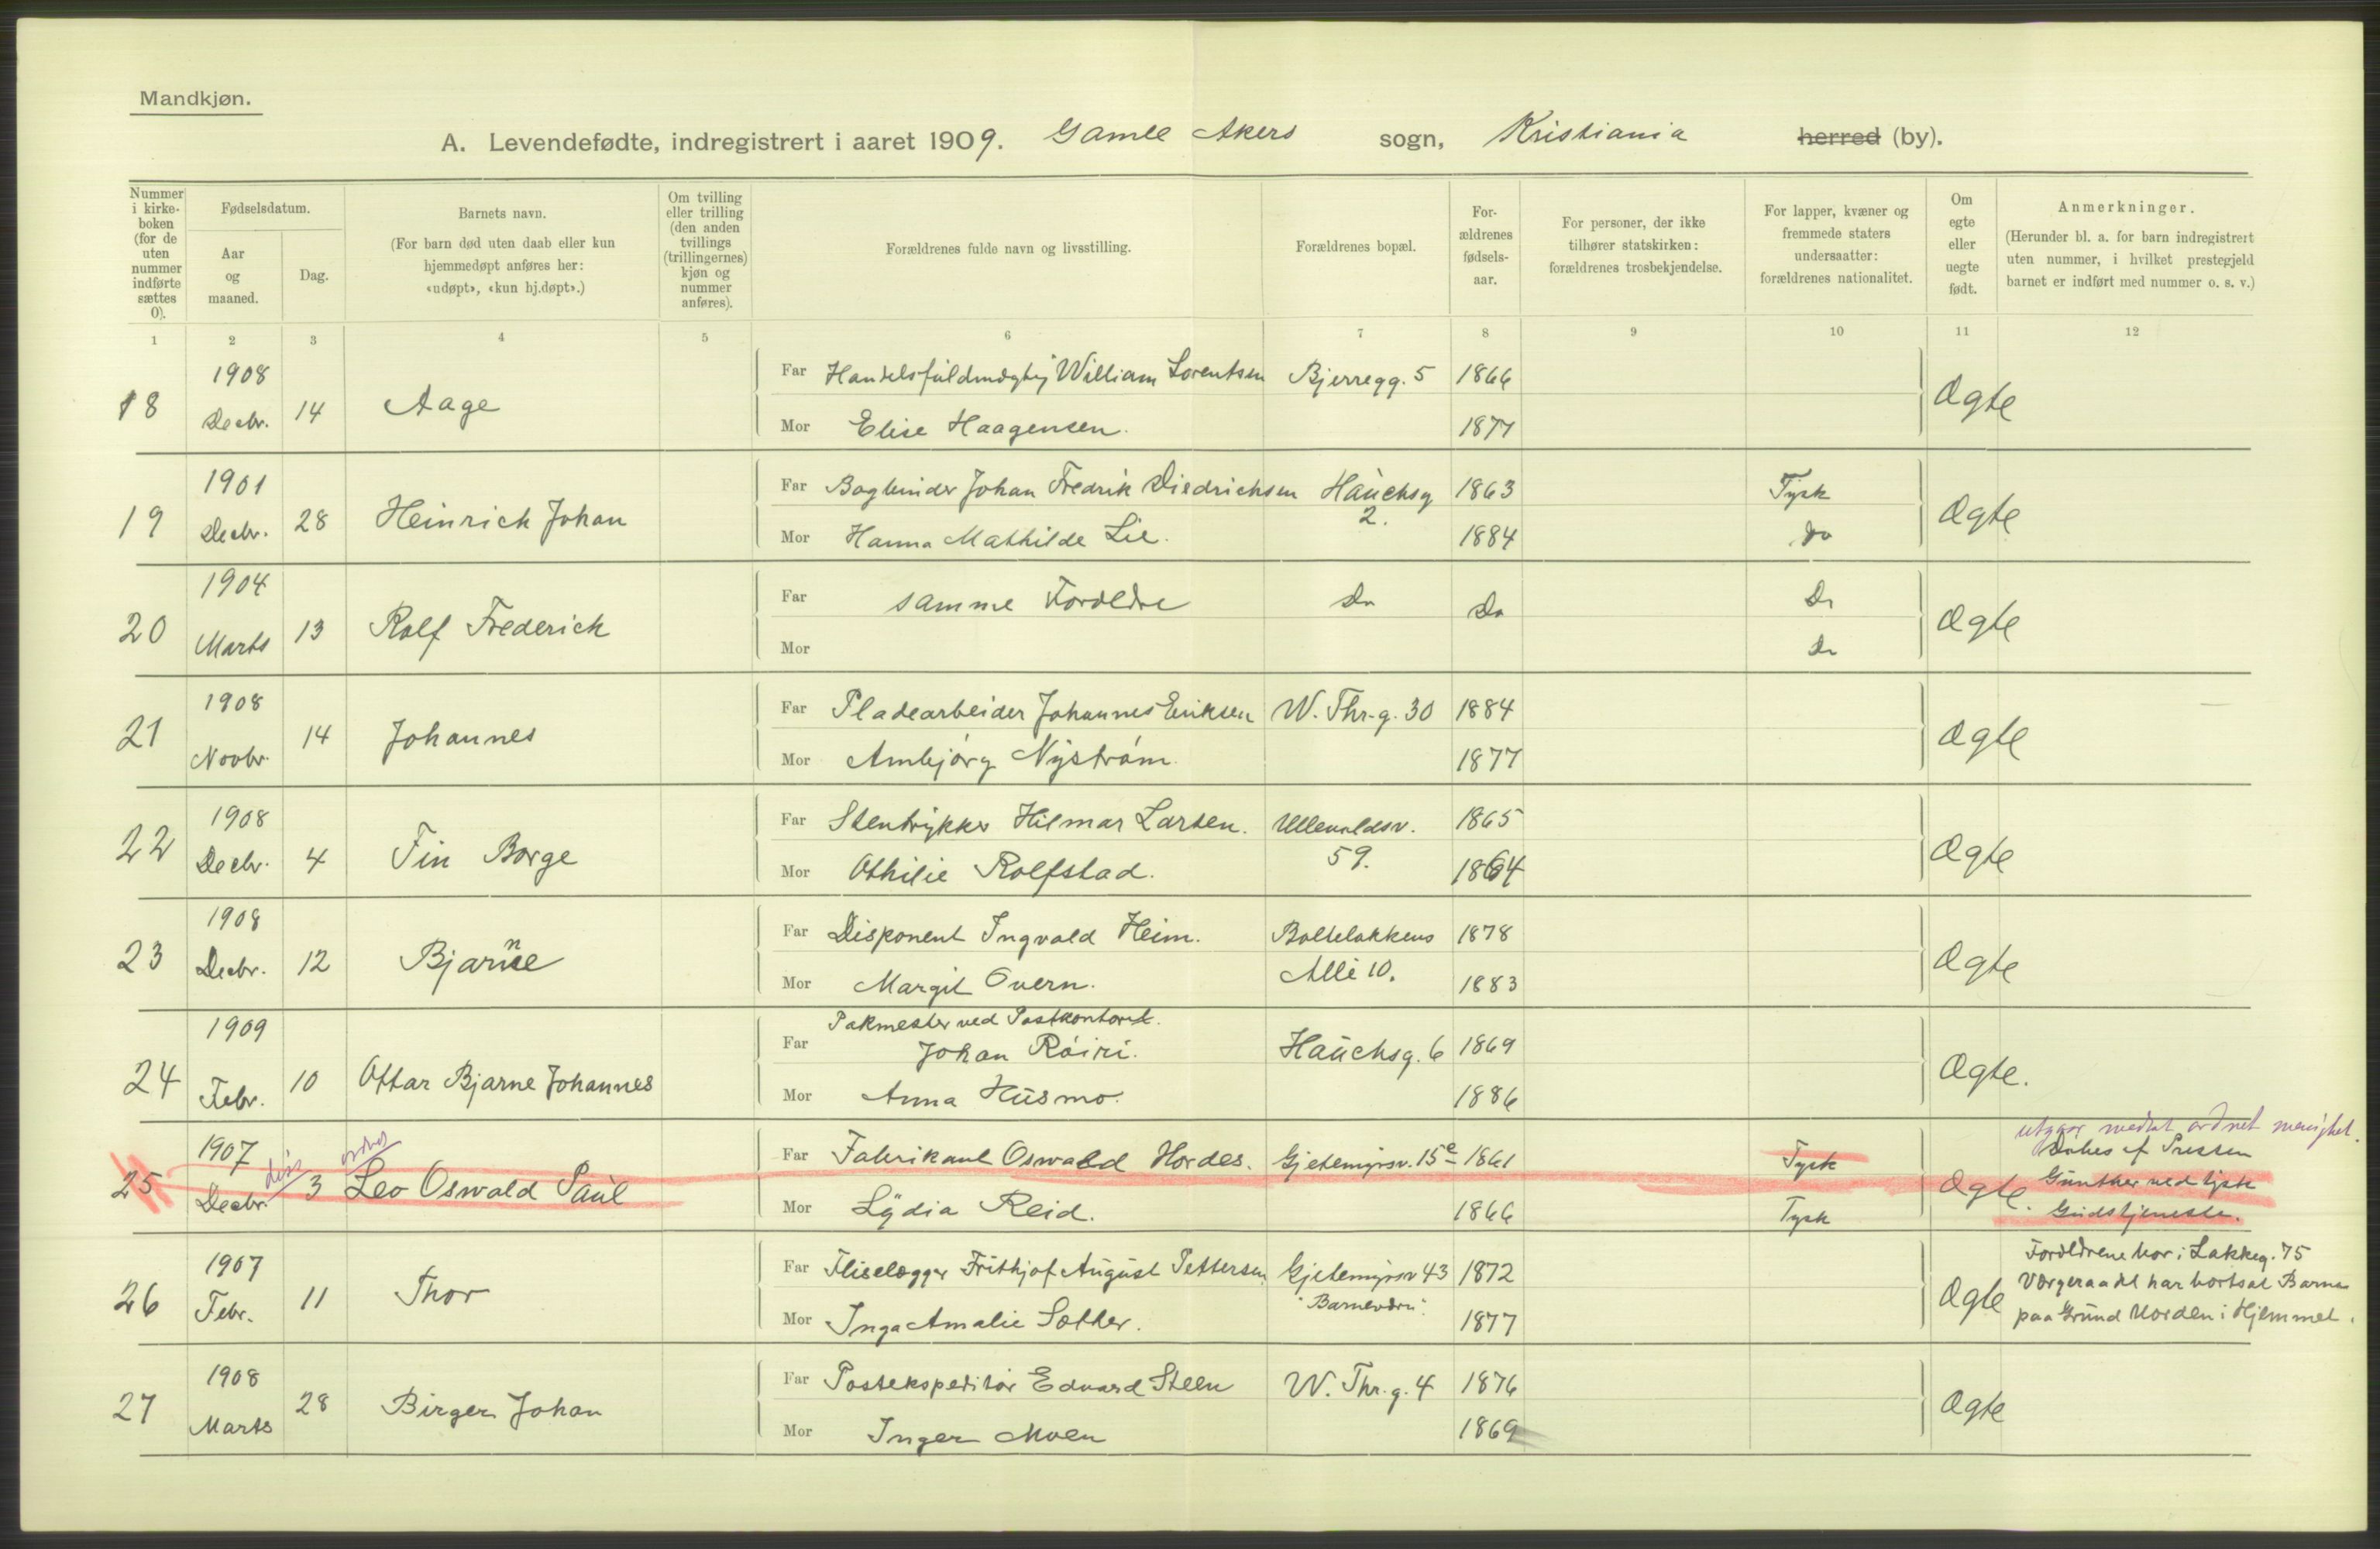 Mandkjøn.
A. Levendefødte, indregistrert i aaret 1909. Gamle Akers sogn, Kristiania herred (by).
Nummer i kirke-boken (for de uten nummer indførte sættes 0).
Fødselsdatum.
Aar og maaned.
Dag.
Barnets navn.
(For barn død uten daab eller kun hjemmedøpt anføres her: «udøpt», «kun hj.døpt».)
Om tvilling eller trilling (den anden tvillings (trillingernes) kjøn og nummer anføres).
Forældrenes fulde navn og livsstilling.
Forældrenes bopæl.
For-ældrenes fødsels-aar.
For personer, der ikke tilhører statskirken: forældrenes trosbekjendelse.
For lapper, kvæner og fremmede staters undersaatter: forældrenes nationalitet.
Om egte eller uegte født.
Anmerkninger.
(Herunder bl. a. for barn indregistrert uten nummer, i hvilket prestegjeld barnet er indført med nummer o. s. v.)
1 2 3 4 5 6 7 8 9 10 11 12
18 1908 Decbr. 14 Aage
Far Handelsfuldmægtig William Lorentsen Bjerregg. 5 1866
Mor Elise Haagensen. 1877
Ægte
19 1901 Decbr. 28 Heinrich Johan
Far Bogbinder Johan Fredrik Diedrichsen Hauchsg 2. 1863 Tysk
Mor Hanna Mathilde Lie. 1884 do
Ægte
20 1904 Marts 13 Rolf Frederick
Far samme Forældre Do Do Do
Mor Do
Ægte
21 1908 Novbr. 14 Johannes
Far Pladearbeider Johannes Eriksen W. Thr.g. 30 1884
Mor Ambjørg Nystrøm. 1877
Ægte
22 1908 Decbr. 4 Fin Borge
Far Stentrykker Hilmar Larsen. Ullevoldsv. 59. 1865
Mor Othilie Rolfstad. 1864
Ægte
23 1908 Decbr. 12 Bjarne
Far Disponent Ingvald Heim. Bolteløkkens Allé 10. 1878
Mor Margit Overn. 1883
Ægte
24 1909 Febr. 10 Ottar Bjarne Johannes
Pakmester ved Postkontoret.
Far Johan Röiri. Hauchsg. 6 1869
Mor Anna Husmo. 1886
Ægte.
25 1907 Decbr. 3 Leo Oswald Paul
Far Fabrikant Oswald Hordes. Gjetemyrsv. 15e 1861 Tysk
Mor Lydia Reid. 1866 Tysk
Ægte.
utgaar medtat ordnet menighet.
Døbes af Presten
Günther ved tysk
Gudstjeneste.
26 1907 Febr. 11 Thor
Far Fliselægger Frithjof August Pettersen Gjetemyrsv 43 1872
"Barnevern".
Mor Inga Amalie Sæther. 1877
Ægte
Forældrene bor i Lakkeg. 75
Værgeraadet har bortsat Barnet
paa Grund Uorden i Hjemmet.
27 1908 Marts 28 Birger Johan
Far Postekspeditør Edvard Steen W. Thr.g. 4 1876
Mor Inger Moen 1869
Ægte